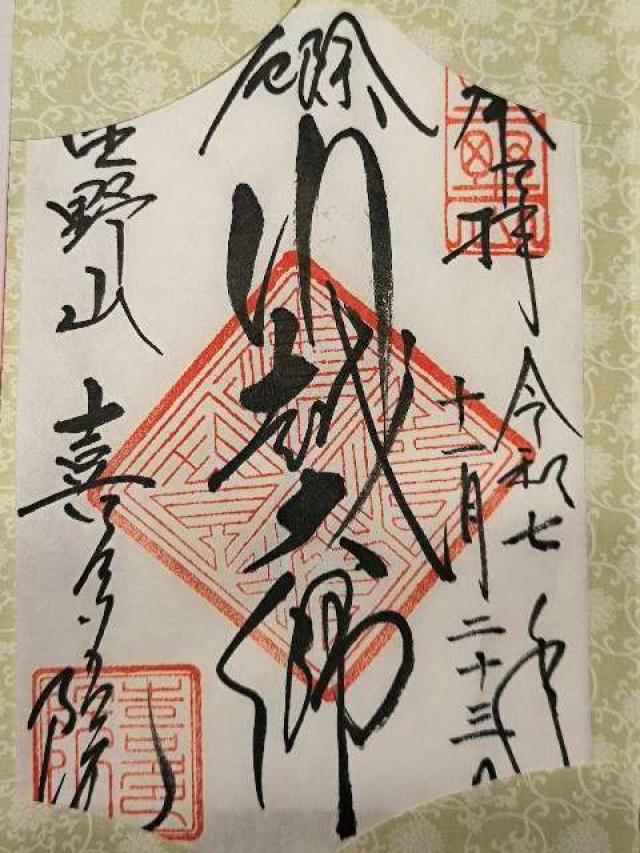 奉拝 令和七年
十一月二十三日
厄除
川越大師
星野山 喜多院